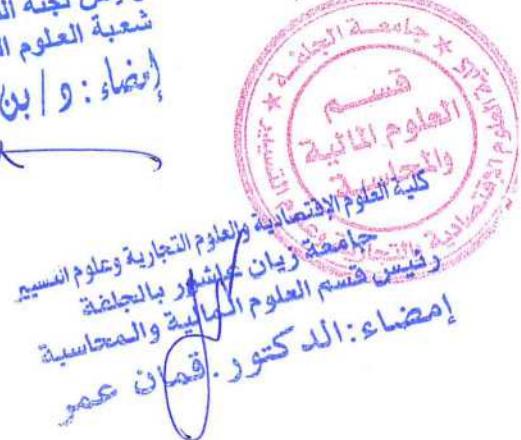 لجنة
شعبة العلوم
إمضاء : د / بن
جامعة الجلفة
قسم
العلوم المالية
والمحاسبة
كلية العلوم الإقتصادية والعلوم التجارية وعلوم التسيير
جامعة زيان عاشور بالجلفة
رئيس قسم العلوم المالية والمحاسبة
إمضاء : الدكتور . قمان عمر